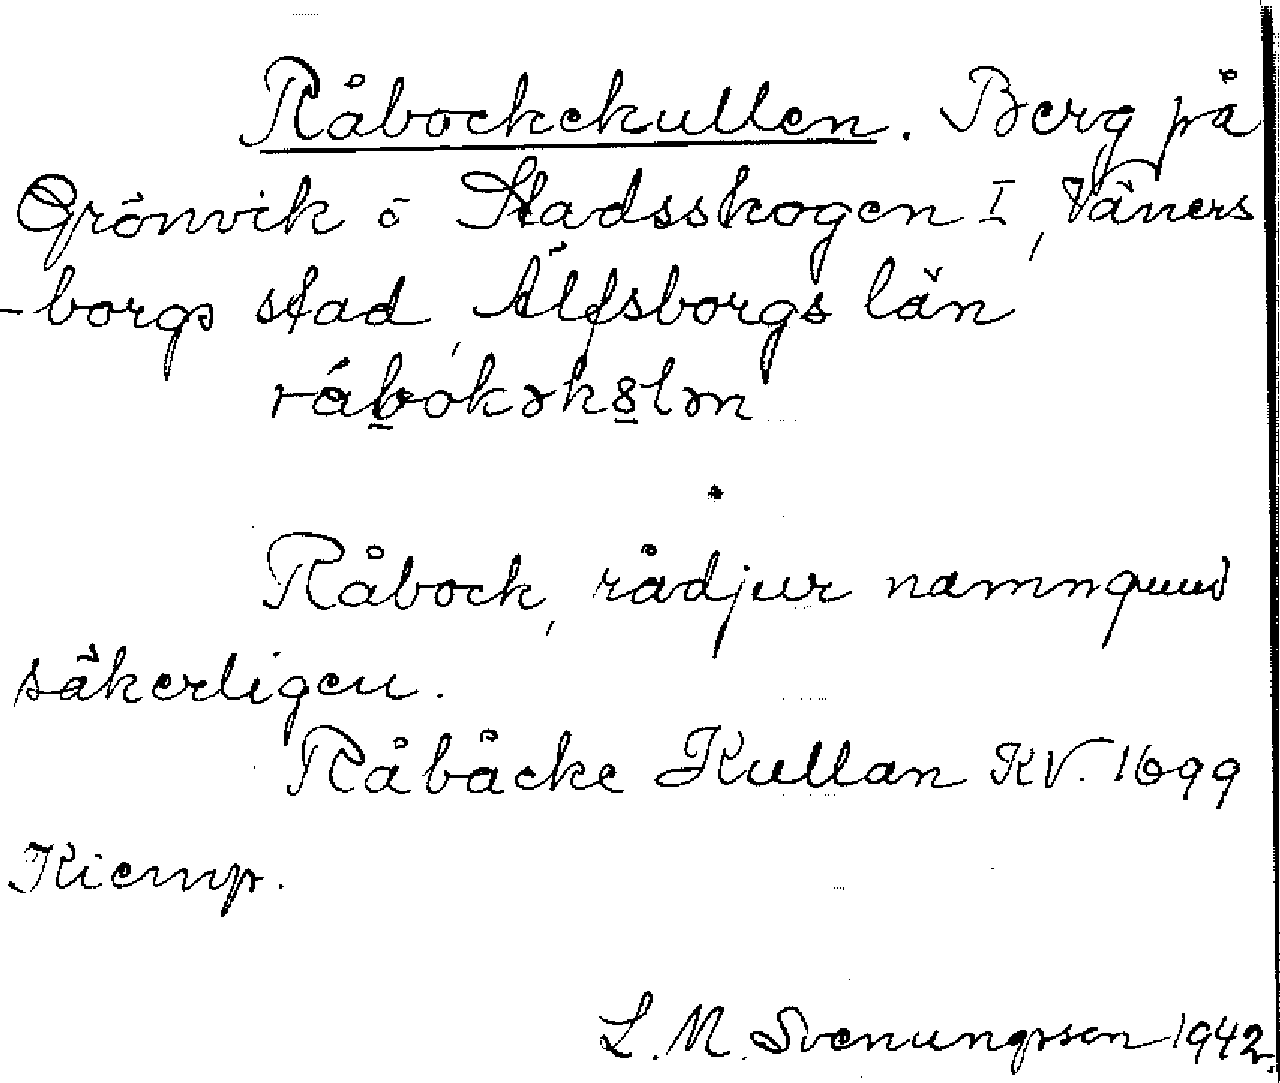 Råbockekullen. Berg på
Grönvik o Stadsskogen I, Väners
-borgs stad, Älfsborgs län
rábòkəkȣlən
Råbock, rådjur namngivit
säkerligen.
Råbåcke Kullan KV. 1699
Kiemp.
L. M. Svenungsson 1942.